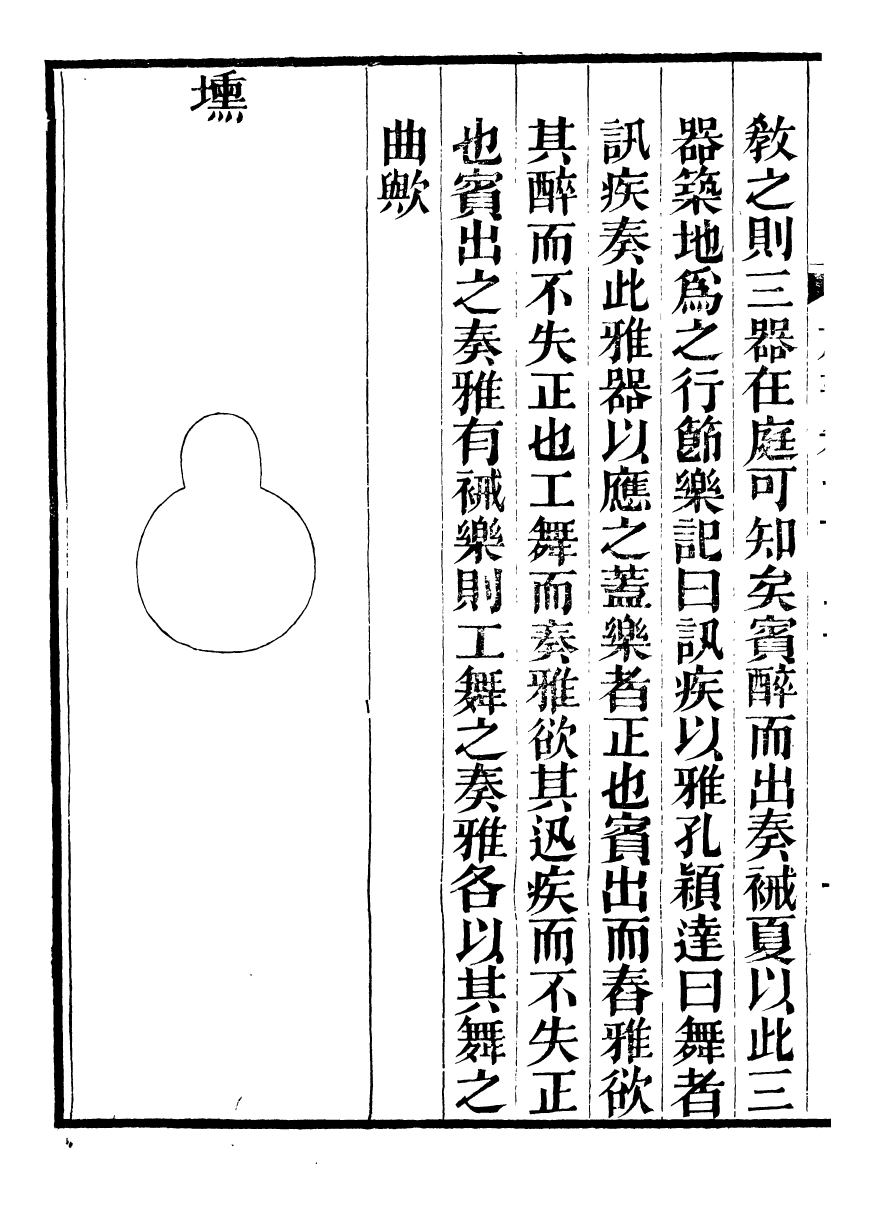 敎之則三器在庭可知矣賓醉而出奏祴夏以此三
器築地爲之行節樂記曰訊疾以雅孔穎達曰舞者
訊疾奏此雅器以應之蓋樂者正也賓出而舂雅欲
其醉而不失正也工舞而奏雅欲其迅疾而不失正
也賓出之奏雅有祴樂則工舞之奏雅各以其舞之
曲歟
壎